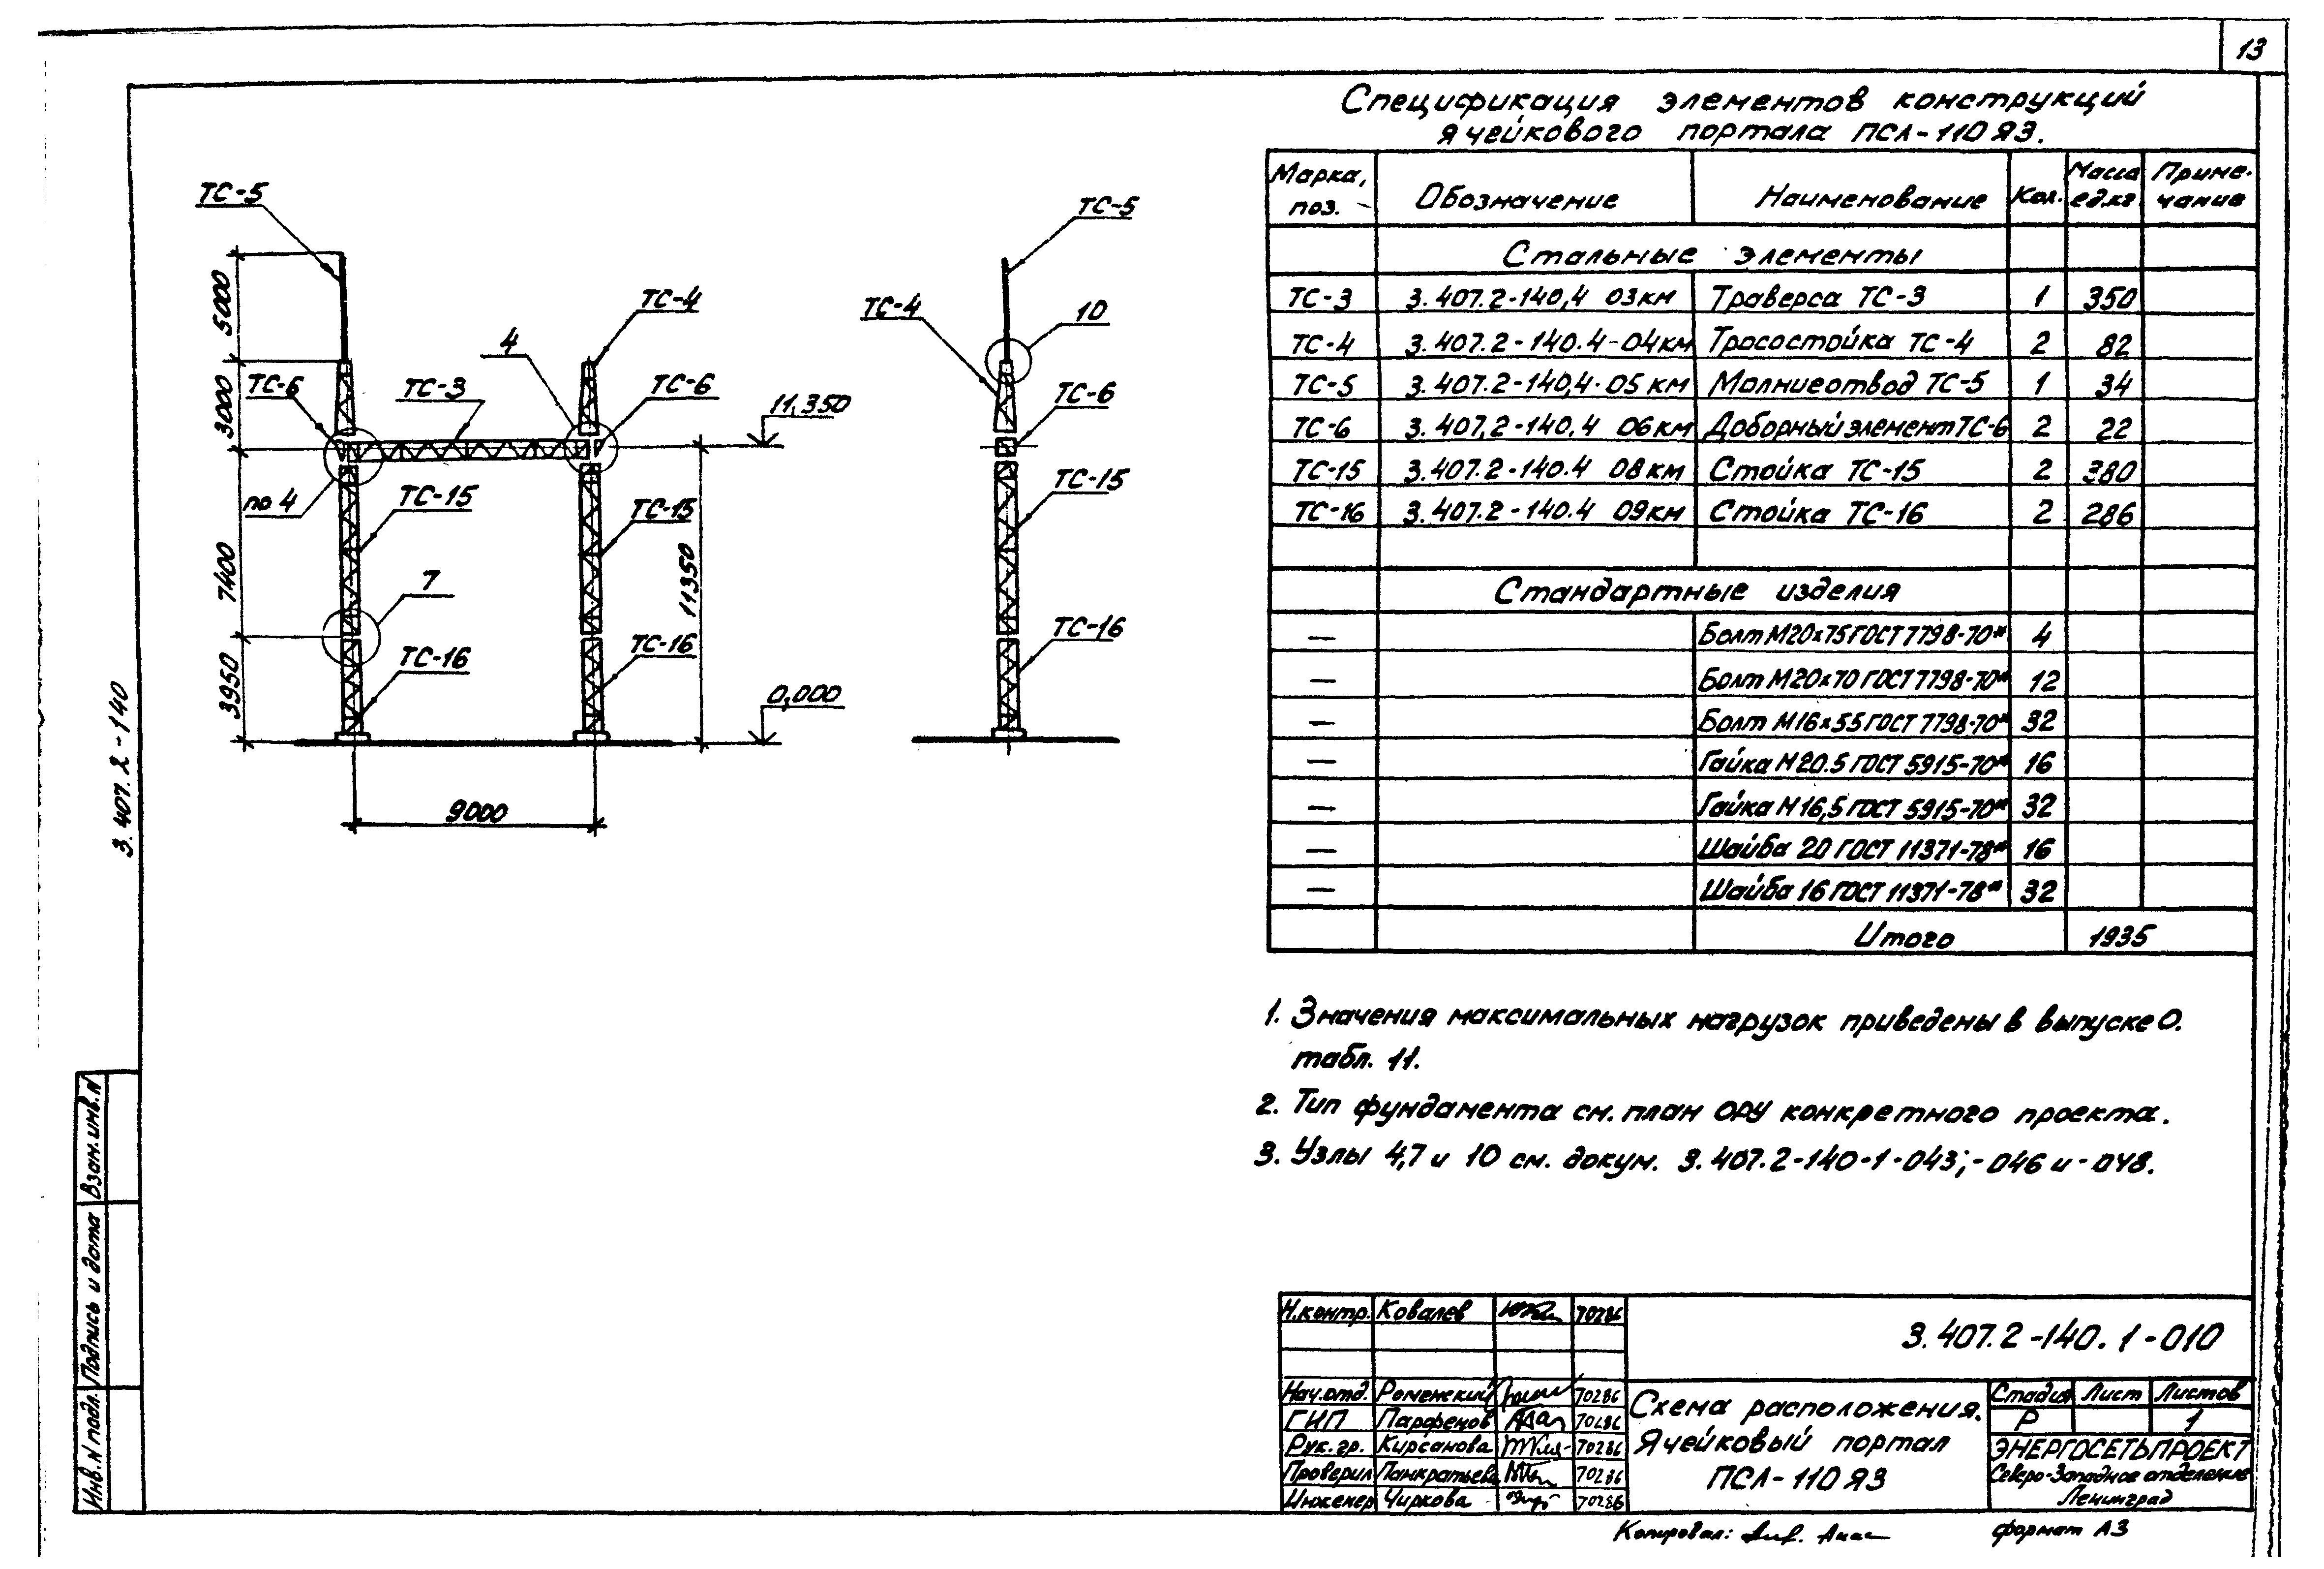 13
Спецификация элементов конструкций
ячейкового портала ПСЛ-110 Я3.
Марка, поз. Обозначение Наименование Кол. Масса ед.кг Приме-чание
Стальные элементы
ТС-3 3.407.2-140,4 03км Траверса ТС-3 1 350
ТС-4 3.407.2-140.4-04км Тросостойка ТС-4 2 82
ТС-5 3.407.2-140,4-05 км Молниеотвод ТС-5 1 34
ТС-6 3.407,2-140.4 06км Доборный элемент ТС-6 2 22
ТС-15 3.407.2-140.4 08км Стойка ТС-15 2 380
ТС-16 3.407.2-140.4 09км Стойка ТС-16 2 286
Стандартные изделия
— Болт М20х75 ГОСТ 7798-70* 4
— Болт М20х70 ГОСТ 7798-70* 12
— Болт М16х55 ГОСТ 7798-70* 32
— Гайка М20.5 ГОСТ 5915-70* 16
— Гайка М16,5 ГОСТ 5915-70* 32
— Шайба 20 ГОСТ 11371-78* 16
— Шайба 16 ГОСТ 11371-78* 32
Итого 1935
ТС-5
5000
ТС-4
4
3000
ТС-6
ТС-3
ТС-6
11,350
по 4
ТС-15
ТС-15
7400
11350
7
ТС-16
ТС-16
3950
0,000
9000
ТС-5
ТС-4
10
ТС-6
ТС-15
ТС-16
3.407.2-140
1. Значения максимальных нагрузок приведены в выпуске 0.
табл. 11.
2. Тип фундамента см. план ОРУ конкретного проекта.
3. Узлы 4,7 и 10 см. докум. 3.407.2-140-1-043;-046 и-048.
Взам.инв.N
Подпись и дата
Инв.N подл.
Н.контр. Ковалев 70286
3.407.2-140.1-010
Нач.отд. Роменский 70286
ГИП Парфенов 70286
Рук.гр. Кирсанова 70286
Проверил Панкратьева 70286
Инженер Чиркова 70286
Схема расположения.
Ячейковый портал
ПСЛ-110 Я3
Стадия Лист Листов
Р 1
ЭНЕРГОСЕТЬПРОЕКТ
Северо-Западное отделение
Ленинград
Копировал:
формат А3